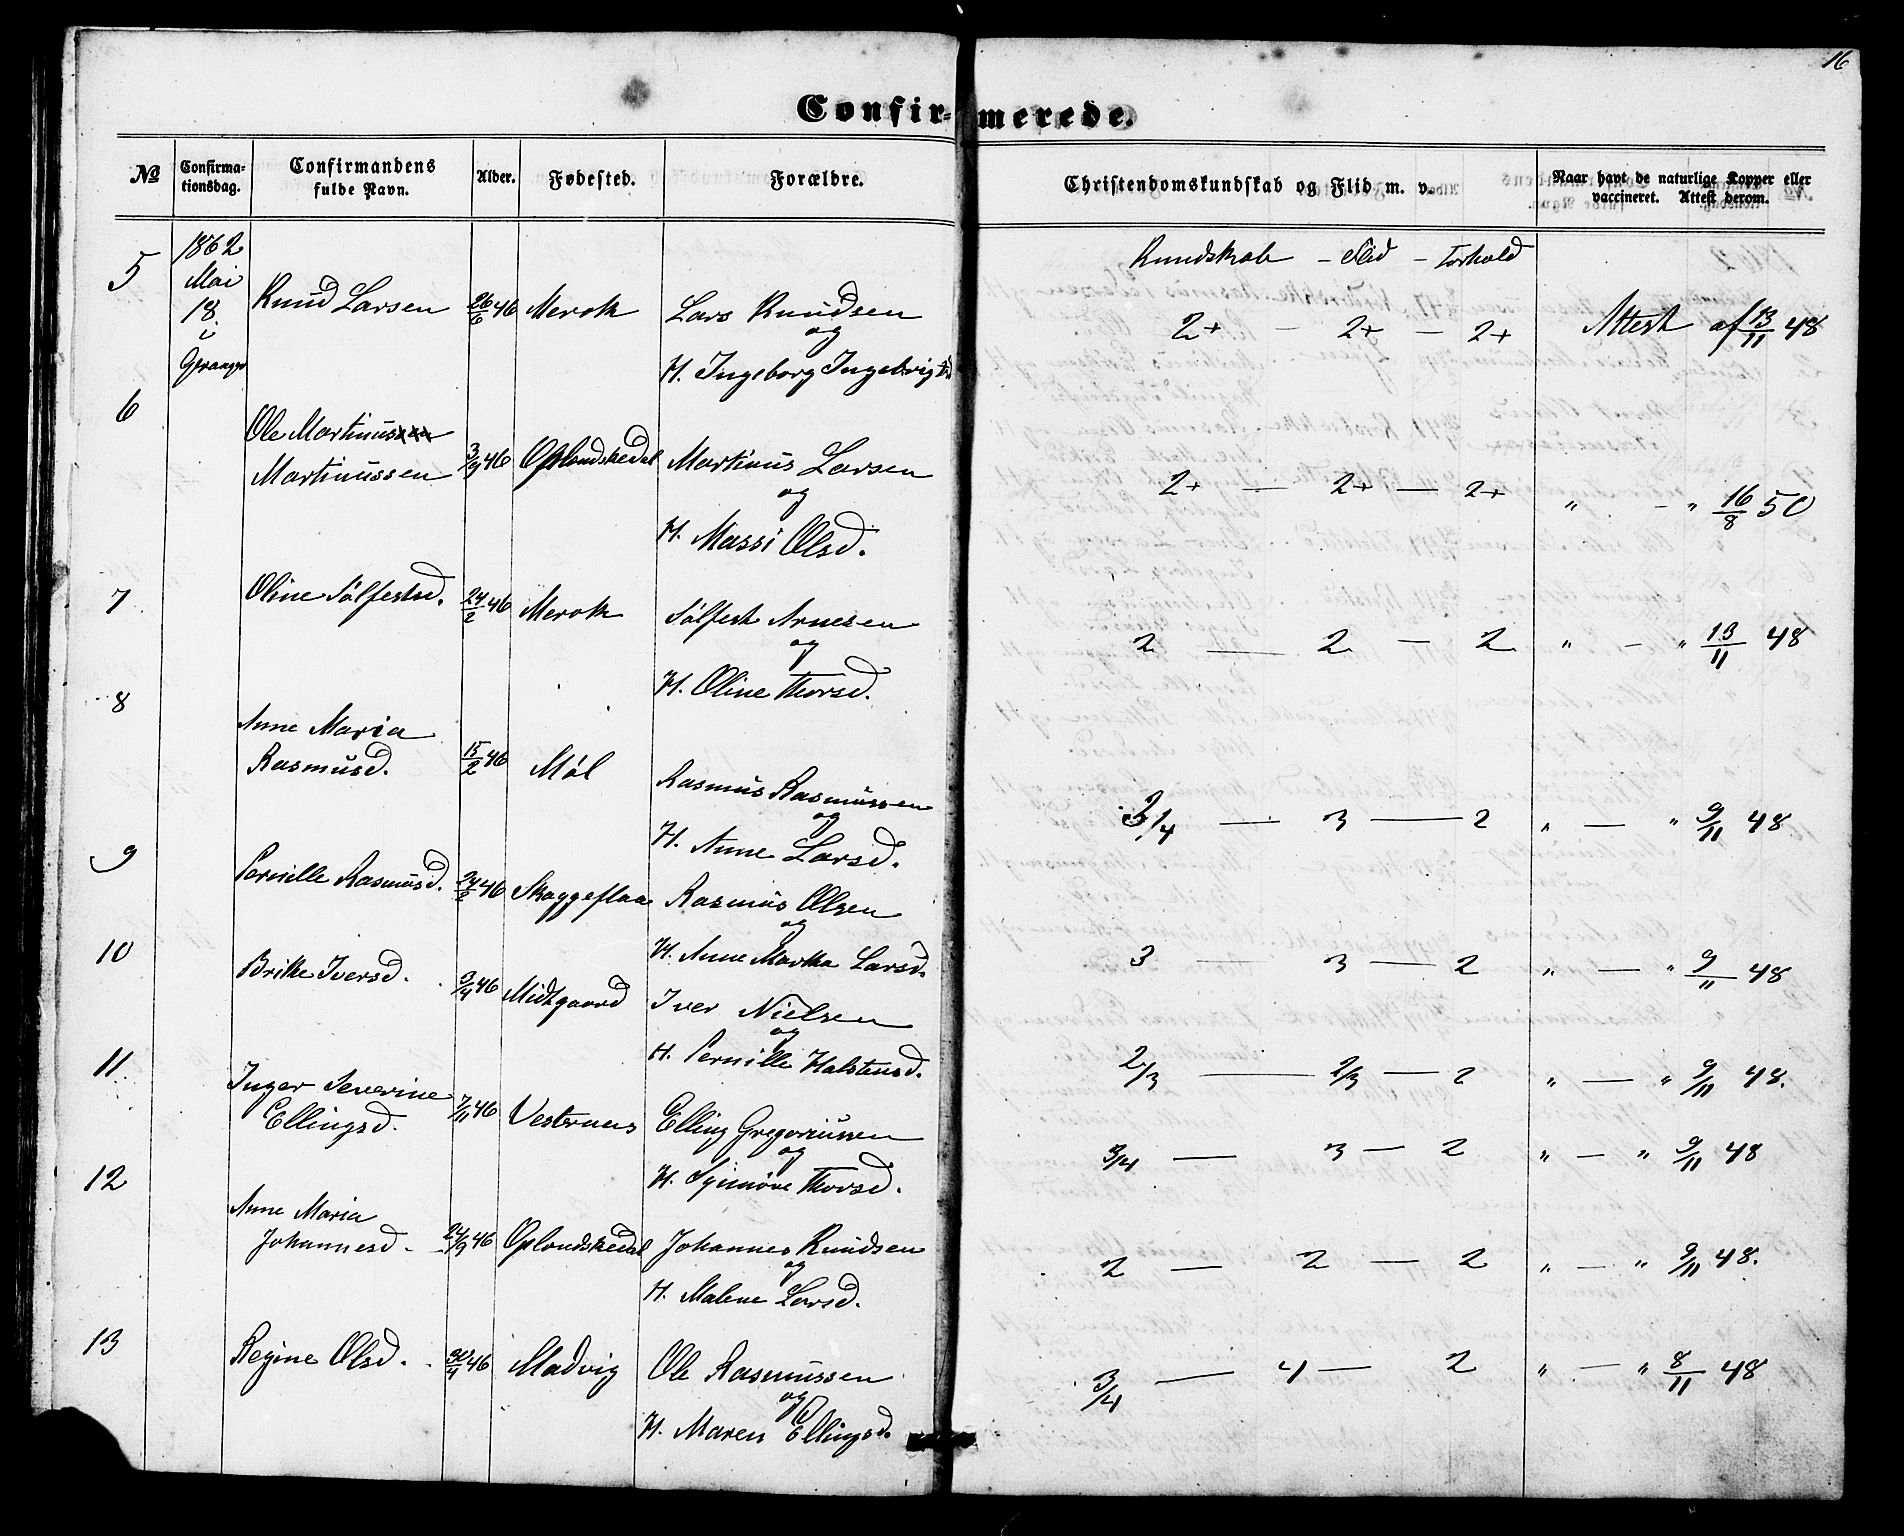 16
Confir- merede.
No Confirma-tionsdag. Confirmandens fulde Navn. Alder. Fødested. Forældre. Christendomskundskab og Flid m. v. Naar havt de naturlige Kopper eller vaccineret. Attest derom.
Kundskab - Flid - Forhold
5 1862 Mai 18. i Knud Larsen 26/6 46 Merok Lars Knudsen
og
H. Ingeborg Ingebrigtsd
2+ - 2+ - 2+ Attest af 13/11 48
6 Ole Martinus
Martinussen 3/9 46 Oplandskedal Martinus Larsen
og
H. Massi Olsd.
2+ - 2+ - 2+ " - " 16/8 50
7 Oline Sølfestsd. 24/2 46 Merok Sølfest Arnesen
og
H. Oline Thorsd.
2 - 2 - 2 " - " 13/11 48
8 Anne Maria
Rasmusd. 15/2 46 Møl Rasmus Rasmussen
og
H. Anne Larsd.
3/4 - 3 - 2 " - " 9/11 48
9 Pernille Rasmusd. 24/2 46 Skaggeflaa Rasmus Olsen
og
H. Anne Martha Larsd.
3 - 3 - 2 " - " 9/11 48
10 Britte Iversd. 3/4 46 Midtgaard Iver Nielsen
og
H. Pernille Halstensd.
2/3 - 2/3 - 2 " - " 9/11 48.
11 Inger Severine
Ellingsd. 7/11 46 Vesteraas Elling Gregoriussen
og
H. Synnøve Thorsd.
3/4 - 3 - 2 " - " 9/11 48
12 Anne Maria
Johannesd. 24/9 46 Oplandskedal Johannes Knudsen
og
H. Malene Larsd.
2 - 2 - 2 " - " 9/11 48.
13 Regine Olsd. 30/4 46 Madvig Ole Rasmussen
og
H. Maren Ellingsd.
3/4 - 4 - 2 " - " 8/11 48